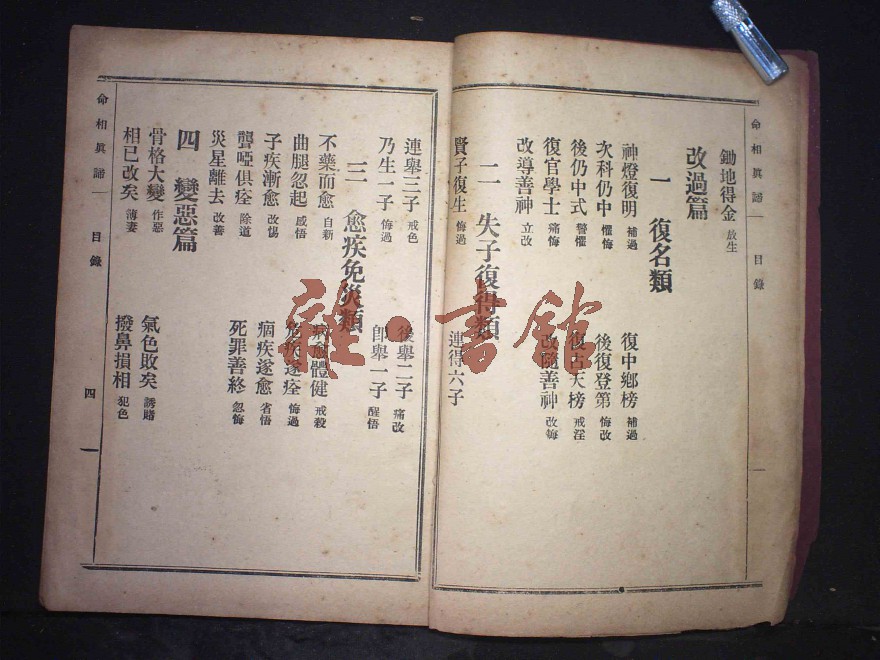 命相眞諦 目錄
鋤地得金 放生
改過篇
一 復名類
神燈復明 補過 復中鄉榜 補過
次科仍中 懼悔 後復登第 悔改
後仍中式 警懼 復占天榜 戒淫
復官學士 痛悔 改隨善神 改悔
改導善神 立改
二 失子復得類
賢子復生 悔過 連得六子
連舉三子 戒色 後舉二子 痛改
乃生一子 悔過 卽舉一子 醒悟
三 愈疾免災類
不藥而愈 自新 體健 戒殺
曲腿忽起 感悟 疾遂痊 悔過
子疾漸愈 改惕 痼疾遂愈 省悟
聾啞俱痊 除道 死罪善終 忽悔
災星離去 改善
四 變惡篇
骨格大變 作惡 氣色敗矣 誘賭
相已改矣 薄妻 撥鼻損相 犯色
命相眞諦 目錄 四
雒·書館